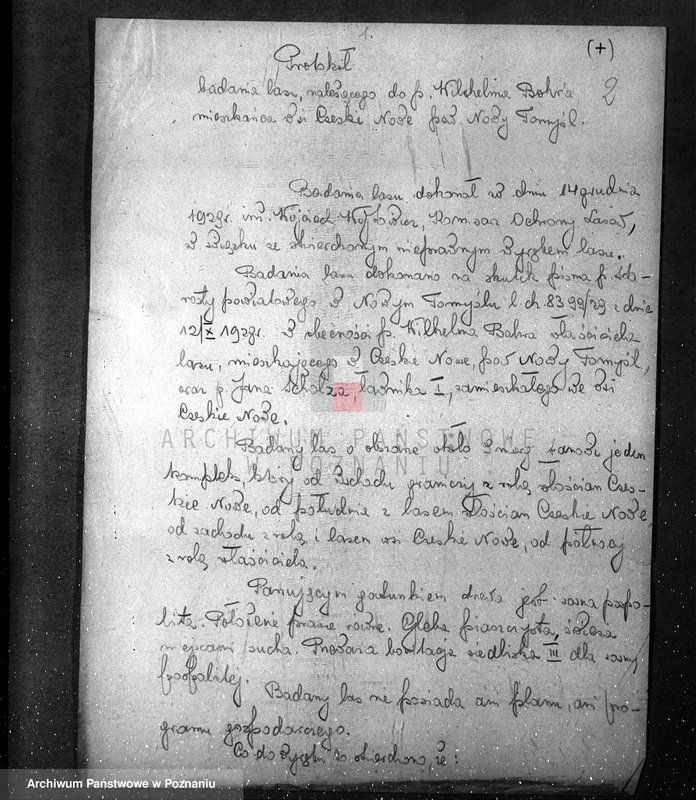 1.
(+)
2
Protokół
badania lasu, należącego do p. Wilhelma Bohr'a
mieszkańca wsi Czeskie Nowe pow. Nowy Tomyśl.
Badania lasu dokonał w dniu 14 grudnia
1929r. inż. Wojciech Wójtowicz, Komisarz Ochrony Lasów,
w związku ze stwierdzonym nieprawnym wyrębem lasu.
Badania lasu dokonano na skutek pisma p. Sta-
rosty powiatowego w Nowym Tomyślu l. ch 8399/29 z dnia
12/X 1929r. w obecności p. Wilhelma Bohra właściciela
lasu, mieszkającego w Czeskie Nowe, pow. Nowy Tomyśl,
oraz p. Jana Scholza, ławnika I, zamieszkałego we wsi
Czeskie Nowe.
Badany las o obszarze około 3 morg stanowi jeden
kompleks, który od wschodu graniczy z rolą włościan Czes-
kie Nowe, od południa z lasem włościan Czeskie Nowe,
od zachodu z rolą i lasem wsi Czeskie Nowe, od północy
z rolą właściciela.
Panującym gatunkiem drzewa jest sosna pospo-
lita. Położenie prawie równe. Gleba piaszczysta, świeża
miejscami sucha. Przeważa bonitacja siedliska III dla sosny
pospolitej.
Badany las nie posiada ani planu, ani pro-
gramu gospodarczego.
Co do wyrębu to stwierdzono, że:
ARCHIWUM PAŃSTWOWE
W POZNANIU
Archiwum Państwowe w Poznaniu